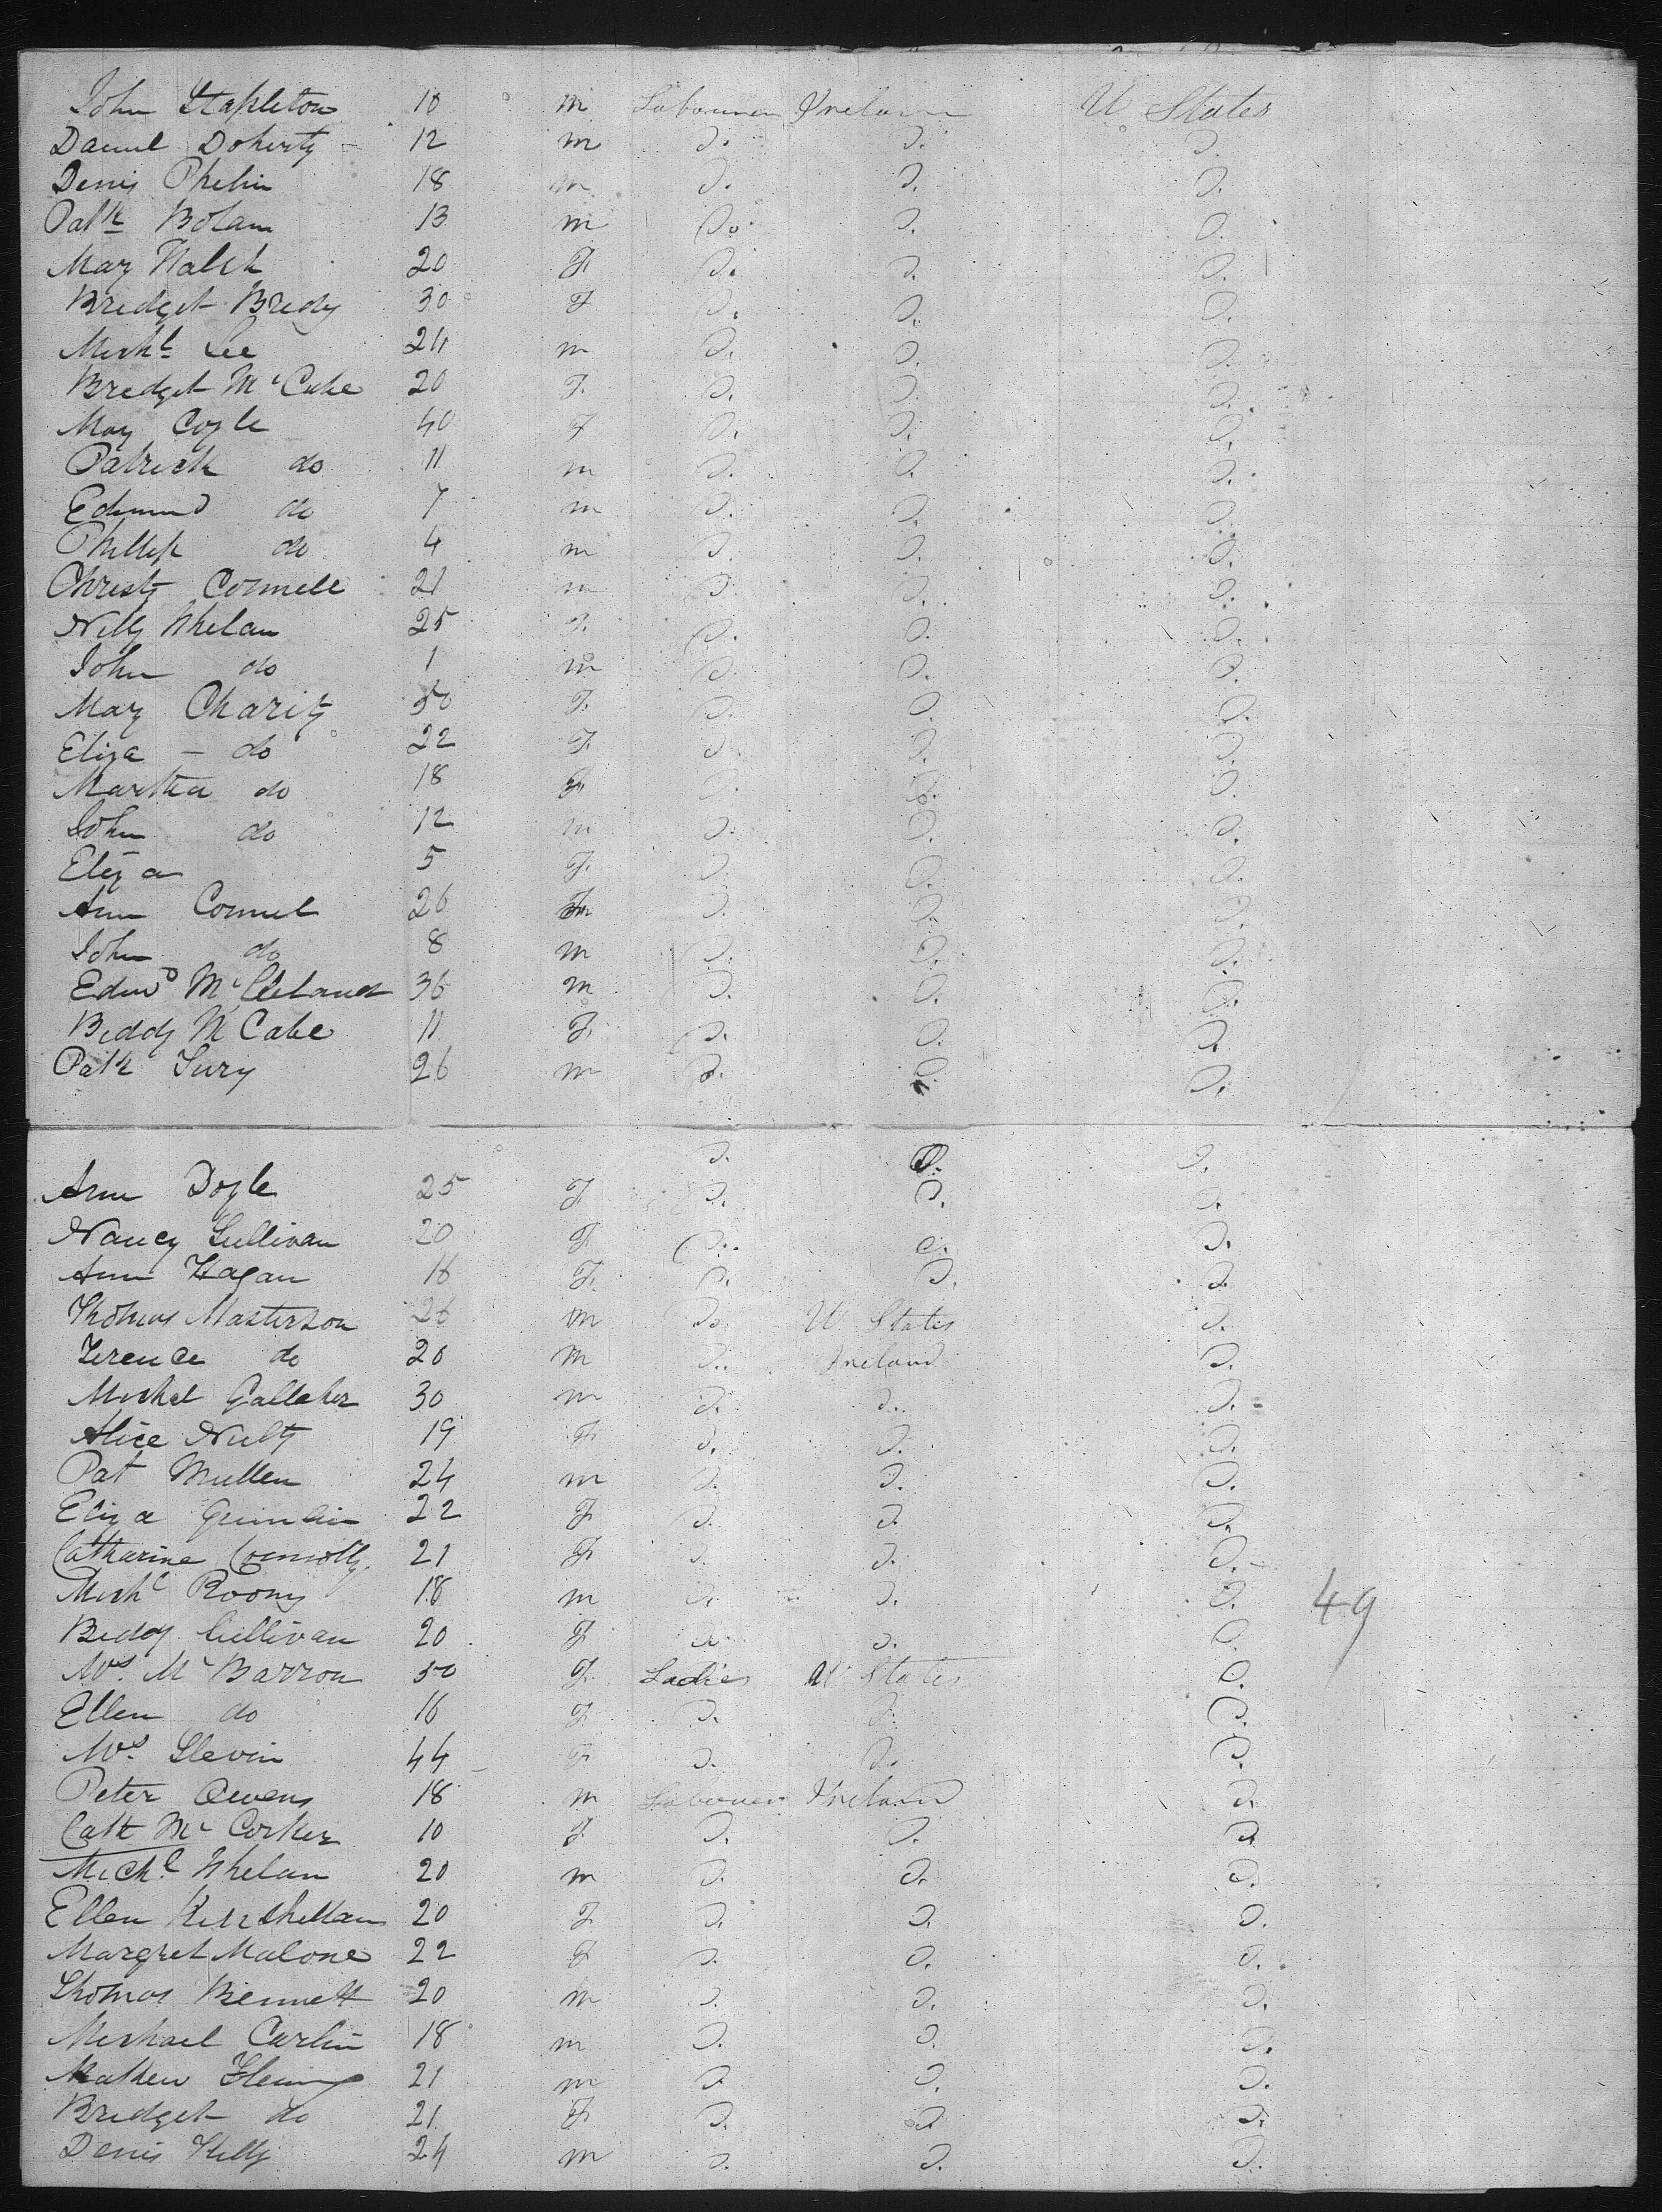 John Stapleton 10 m Labourer Ireland U States
Daniel Doherty - 12 m D. D. D.
Denis Phelin 18 m D. D. D.
Patk Bolam 13 m Do D. D.
Mary Walsh 20 F. D. D. D.
Bridget Bredy 30 F D. D. D.
Michl Lee 24 m D. D. D.
Bredget McCabe 20 F. D. D. D.
Mary Coyle 40 F D. D. D.
Patrick do 11 m D. D. D.
Edmund do 7 m D. D. D.
Phillip do 4 m D. D. D.
Christy Connell 21 m D. D. D.
Nelly Whelan 25 F. D. D. D.
John do 1 m D. D. D.
Mary Charity 50 F. D. D. D.
Eliza - do 22 F. D. D. D.
Martha do 18 F. D. D. D.
John do 12 m D. D. D.
Eliza 5 F. D. D. D.
Ann Connel 26 F D. D. D.
John do 8 m D. D. D.
Edwd McCleland 36 m D. D. D.
Biddy McCabe 11 F. D. D. D.
Patk 26 m D. D. D.
D. D. D.
Ann Doyle 25 F D. D. D.
Nancy Sullivan 20 F. D. D. D.
Ann Hagan 16 F. D. D. D.
Thomas Masterson 26 m Do U. States D.
Terence do 20 m D. Ireland D.
Michel Gallaher 30 m D. D. D.
Alice Nulty 19 F D. D. D.
Pat Mullen 24 m D. D. D.
Eliza Quinlin 22 F D. D. D.
Catharine Connolly 21 F D. D. D.
Michl Roony 18 m D. D. D. 49
Biddy Sullivan 20 F D. D. D.
Mrs. McBarron 50 F. Ladies U States D.
Ellen do 16 F. D. D. D.
Mrs. Slevin 44 F D. D. D.
Peter Owens 18 m Labourer Ireland D.
Cath McCorker 10 F D. D. D.
Michl Whelan 20 m D. D. D.
Ellen Kinshellan 20 F D. D. D.
Margret Malone 22 F D. D. D.
Thomas Bennett 20 m D. D. D.
Michael Carlin 18 m D. D. D.
Mathew Fleming 21 m D. D. D.
Bridget do 21 F D. D. D.
Denis Kelly 24 m D. D. D.